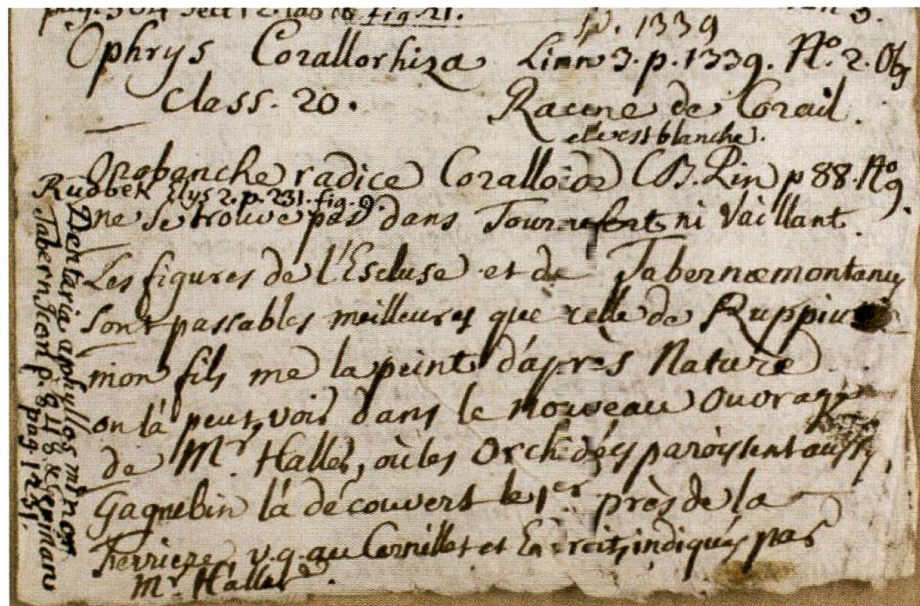 pag. 384 Sect 12. tab 18 fig. 21.
p. 1339
Ophrys Corallorhiza Linn 3. p. 1339. No. 2. Obs
Class. 20. Racine de Corail.
elle est blanche.
Orobanche radice Coralloide C.B. Pin p 88. No 9.
Rudbek Elys 2. p. 231. fig. 9.
ne se trouve pas dans Tournefort ni Vaillant.
Les figures de l'Escluse et de Tabernæmontanus
sont passables meilleures que celle de Ruppius
mon fils me la peint d'apres Nature
on là peut voir dans le nouveau Ouvrage
de Mr. Haller, où les Orchidées paroissent aussy,
Gagnebin là découvert le 1er près de la
Ferriere v.g. au Cernillet et Endroits indiqués par
Mr. Haller
Dentaria aphyllos minor
Tabern Icon p. 848 & German
pag 1231.